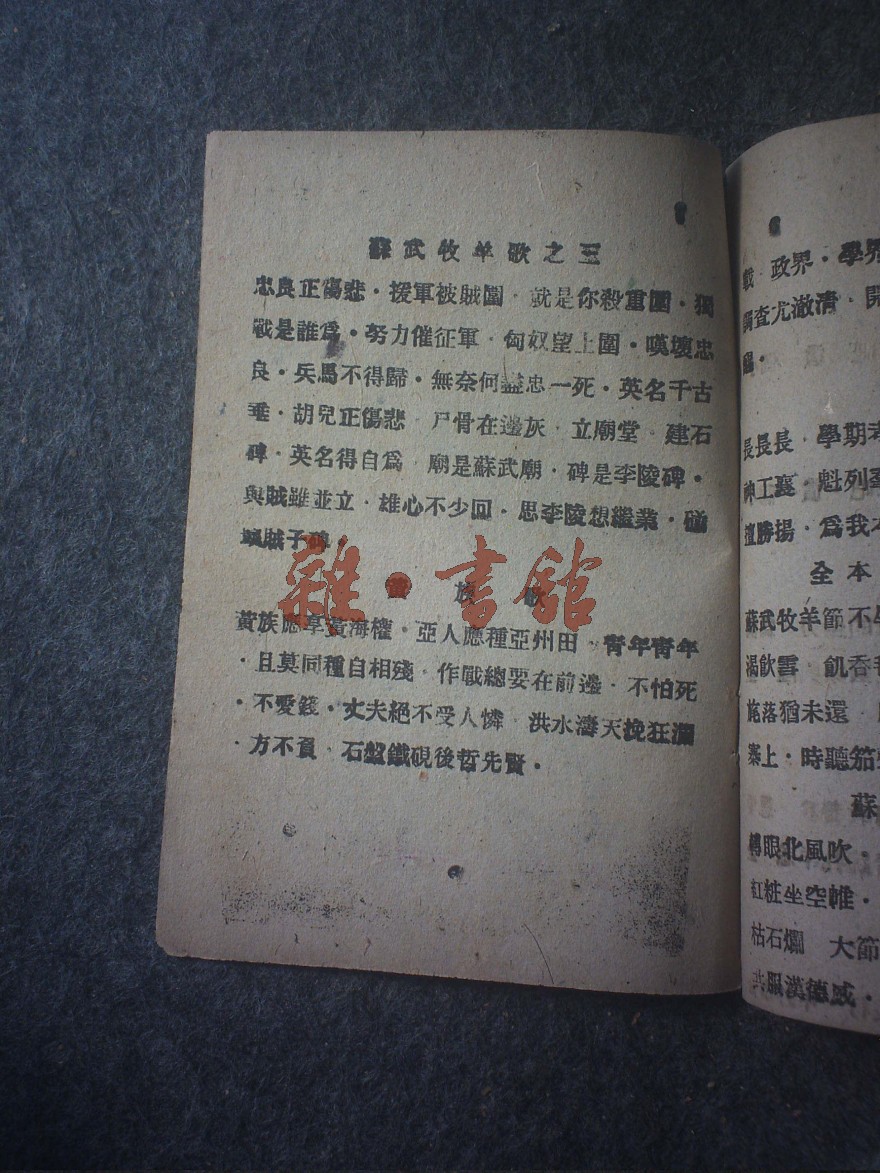 蘇武牧羊歌之三
忠良正傷悲・援軍被賊圍・就是你殺重圍・獨
戰是誰爲・努力催征軍・匈奴望上圍・嘆壞忠
良・兵馬不得歸・無奈何盡忠一死・英名千古
垂・胡兒正傷悲 尸骨在邊灰・立廟堂・建石
碑・英名得自爲・廟是蘇武廟・碑是李陵碑・
與賊雖並立・雄心不少回・思李陵想繼業・碰
賊子碑
雜・書館
族 歌
黃族應享黃海權・亞人應種亞州田・靑年靑年
・且莫同種自相殘・作戰總要在前邊・不怕死
・不愛錢・丈夫絕不受人憐・洪水濤天挽狂瀾
方不負・石盤鐵硯後哲先賢・
載・政界・學界
調查尤澈清・開
長長長・學期考
神工襄・魁列羣
勝揚・爲我本
全本
蘇武牧羊節不
渴飲雪・飢吞
旄落猶未還
寨上・時聽笳
蘇
轉眼北風吹・
紅粧坐空帷・
枯石爛 大節
共服漢德威・